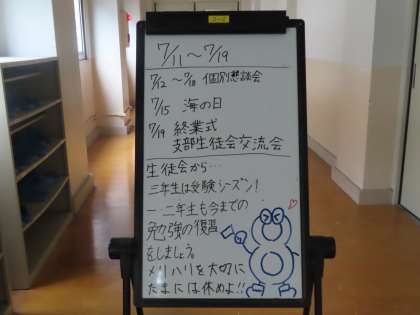 7/11～7/19
7/12～7/18 個別懇談会
7/15 海の日
7/19 終業式
支部生徒会交流会
生徒会から…
三年生は受験シーズン!
一、二年生も今までの
勉強の復習
をしましょう。
メリハリを大切に
たまには休めよ!!